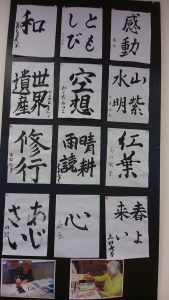 感動
ともしび
和
山紫水明
空想
世界遺産
紅葉
晴耕雨読
修行
春よ来い
心
あじさい